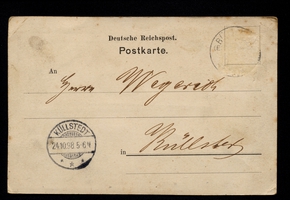 Deutsche Reichspost.
Postkarte.
An
Herrn Wegerich
KÜLLSTEDT
24.10.98 5-6N
in Küllstedt